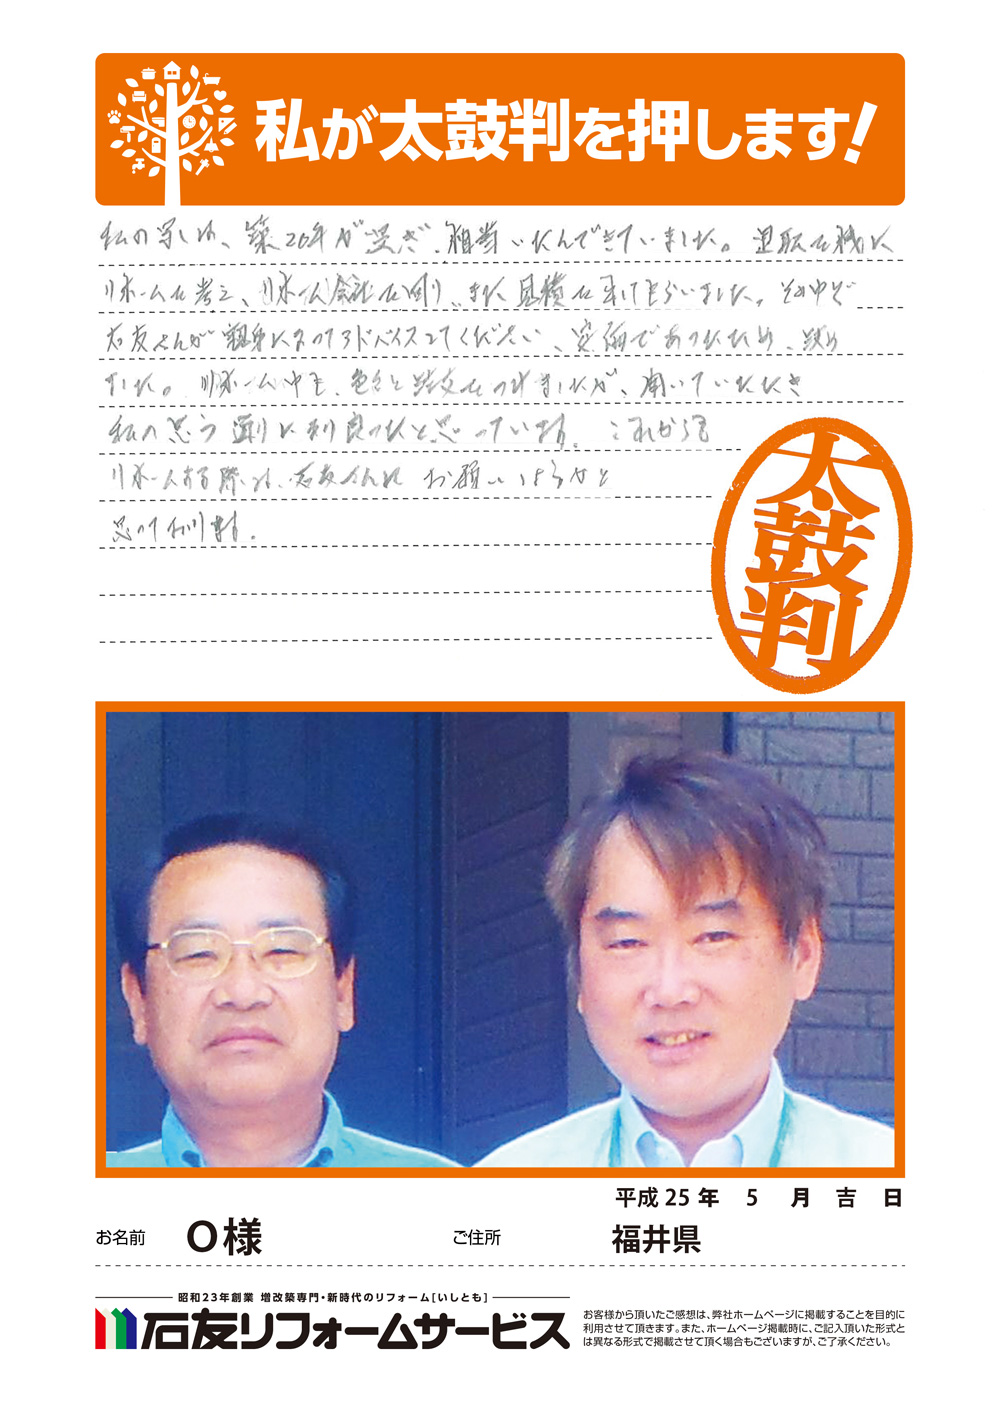 私が太鼓判を押します!
私の家は、築20年が過ぎ、相当いたんできていました。退職を機に
リホームを考え、リホーム会社を回り、また見積を来てもらいました。その中で
石友さんが親身になってアドバイスしてくださり、安価であったため、決め
ました。リホーム中も、色々と注文をつけましたが、聞いていただき
私の思う通りになり良かったと思っています。これからも
リホームする際は、石友さんに お願いしようかと
思っております。
太鼓判
平成25年 5 月 吉 日
お名前 O様 ご住所 福井県
昭和23年創業 増改築専門・新時代のリフォーム[いしとも]
石友リフォームサービス
お客様から頂いたご感想は、弊社ホームページに掲載することを目的に
利用させて頂きます。また、ホームページ掲載時に、ご記入頂いた形式と
は異なる形式で掲載させて頂く場合もございますが、ご了承ください。